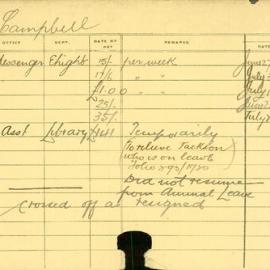 Campbell
OFFICE DEPT. RATE OF PAY REMARKS
Messenger E'light 15/- per week June 27
17/6 " " July
£1.0.0 " " July
25/- June 2
35/- July
Asst Library £141 Temporarily
(To relieve Jackson
who is on leave
Folio 293/1920
Did not resume
from Annual Leave
Crossed off as resigned